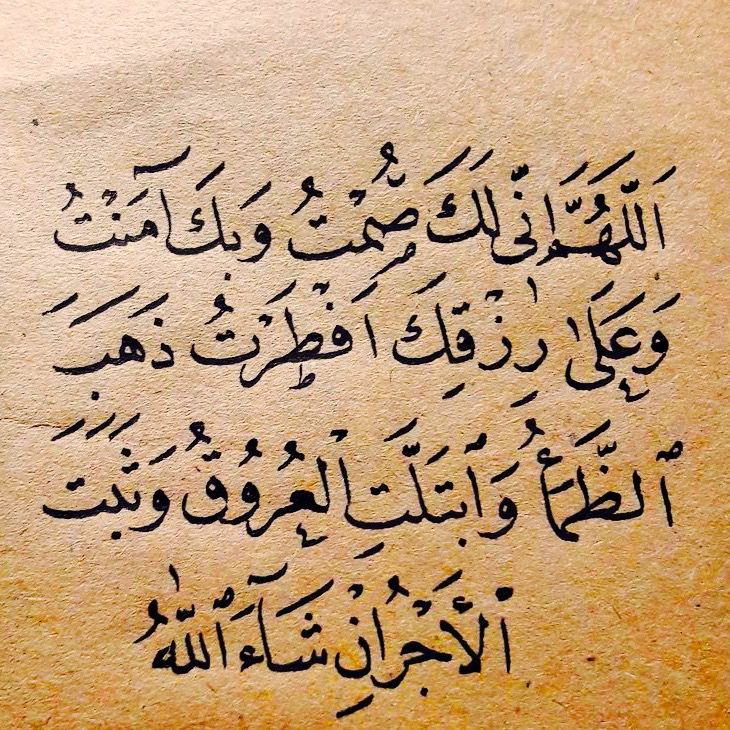 اَللّٰهُمَّ اِنِّى لَكَ صُمْتُ وَبِكَ آمَنْتُ
وَعَلَى رِزْقِكَ اَفْطَرْتُ ذَهَبَ
ٱلظَّمَأُ وَٱبْتَلَّتِ الْعُرُوقُ وَثَبَتَ
ٱلْأَجْرُ اِنْ شَآءَ ٱللّٰهُ